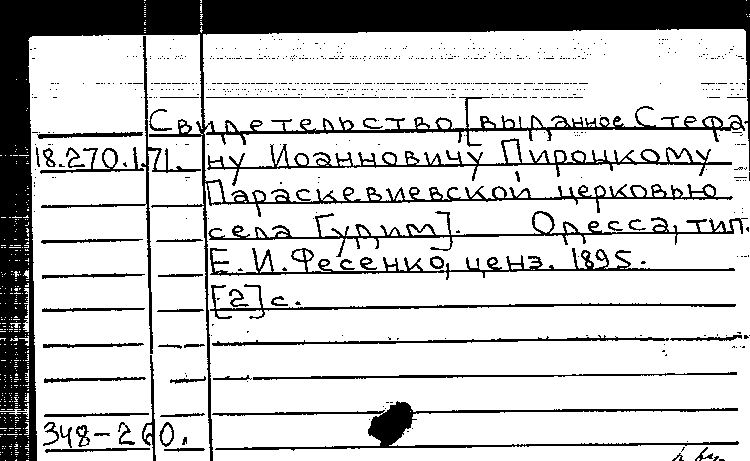 Свидетельство, [выданное Стефа-
18.270.1.71. ну Иоанновичу Пироцкому
Параскевиевской церковью
села Гурим]. Одесса, тип.
Е. И. Фесенко, ценз. 1895.
[2] с.
348-260.